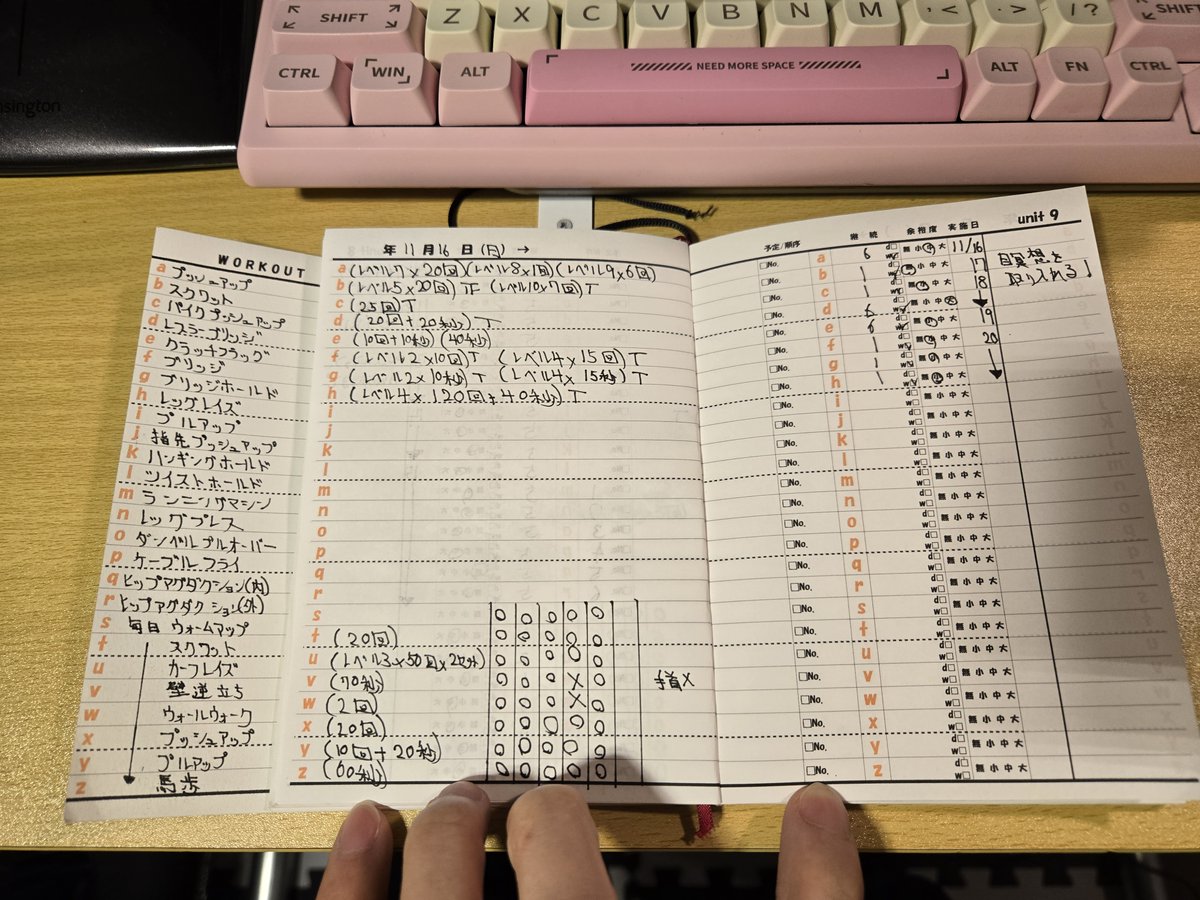 SHIFT Z X C V B N M , < . > / ? SHIFT
CTRL WIN ALT NEED MORE SPACE ALT FN CTRL
WORKOUT
a プッシュアップ
b スクワット
c パイクプッシュアップ
d レスラーブリッジ
e クラッチフラッグ
f ブリッジ
g ブリッジホールド
h レッグレイズ
i プルアップ
j 指先プッシュアップ
k ハンギングホールド
l ツイストホールド
m ランニングマシン
n レッグプレス
o ダンベルプルオーバー
p ケーブルフライ
q ヒップアダクション(内)
r ヒップアブダクション(外)
s 毎日 ウォームアップ
t スクワット
u カーフレイズ
v 壁逆立ち
w ウォールウォーク
x プッシュアップ
y プルアップ
z 馬歩
年 11月 16日 (月) →
a (レベル7×20回)(レベル8×1回)(レベル9×6回)
b (レベル5×20回)T (レベル10×7回)T
c (25回)T
d (20回+20秒)T
e (10回+10秒)(40秒)
f (レベル2×10回)T (レベル4×15回)T
g (レベル2×10秒)T (レベル4×15秒)T
h (レベル4×120回+40秒)T
i
j
k
l
m
n
o
p
q
r
s ○ ○ ○ ○ ○
t (20回) ○ ○ ○ ○ ○
u (レベル3×50回×2セット) ○ ○ ○ ○ ○
v (70秒) ○ ○ ○ × ○ 手首×
w (2回) ○ ○ ○ × ○
x (20回) ○ ○ ○ ○ ○
y (10回+20秒) ○ ○ ○ ○ ○
z (60秒) ○ ○ ○ ○ ○
予定/順序 継続 余裕度 実施日 unit 9
No. a 6 d w 無 小 中 大 11/16
No. b 1 d w 無 小 中 大 17
No. c 1 d w 無 小 中 大 18
No. d 6 d w 無 小 中 大
No. e 6 d w 無 小 中 大 19
No. f 1 d w 無 小 中 大 20
No. g 1 d w 無 小 中 大
No. h 1 d w 無 小 中 大
瞑想を
取り入れる!
No. i d w 無 小 中 大
No. j d w 無 小 中 大
No. k d w 無 小 中 大
No. l d w 無 小 中 大
No. m d w 無 小 中 大
No. n d w 無 小 中 大
No. o d w 無 小 中 大
No. p d w 無 小 中 大
No. q d w 無 小 中 大
No. r d w 無 小 中 大
No. s d w 無 小 中 大
No. t d w 無 小 中 大
No. u d w 無 小 中 大
No. v d w 無 小 中 大
No. w d w 無 小 中 大
No. x d w 無 小 中 大
No. y d w 無 小 中 大
No. z d w 無 小 中 大